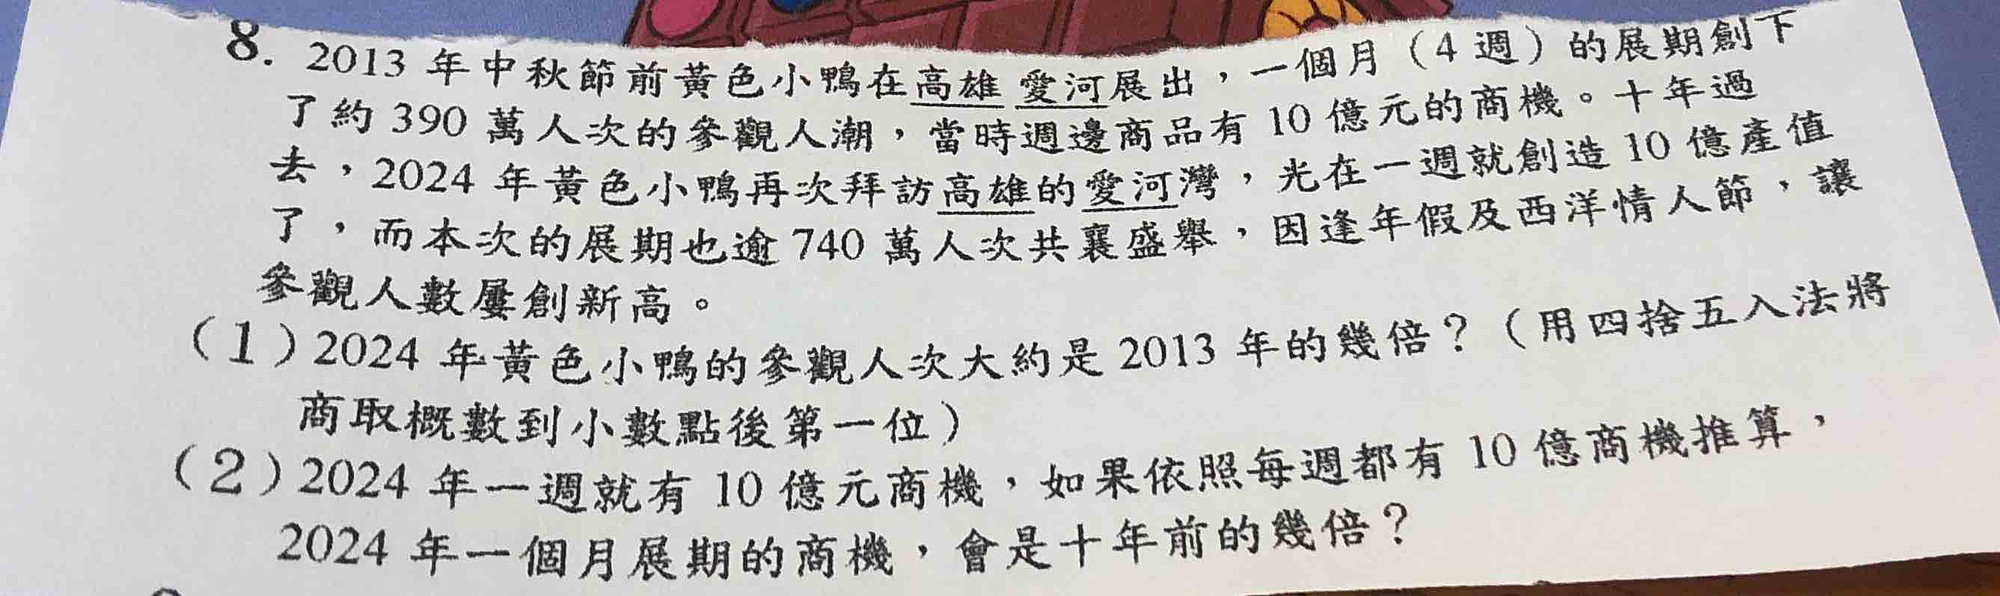 8. 2013 年中秋節前黃色小鴨在高雄 愛河展出，一個月（4 週）的展期創下
了約 390 萬人次的參觀人潮，當時週邊商品有 10 億元的商機。十年過
去，2024 年黃色小鴨再次拜訪高雄的愛河灣，光在一週就創造 10 億產值
了，而本次的展期也逾 740 萬人次共襄盛舉，因逢年假及西洋情人節，讓
參觀人數屢創新高。
（1）2024 年黃色小鴨的參觀人次大約是 2013 年的幾倍？（用四捨五入法將
商取概數到小數點後第一位）
（2）2024 年一週就有 10 億元商機，如果依照每週都有 10 億商機推算，
2024 年一個月展期的商機，會是十年前的幾倍？